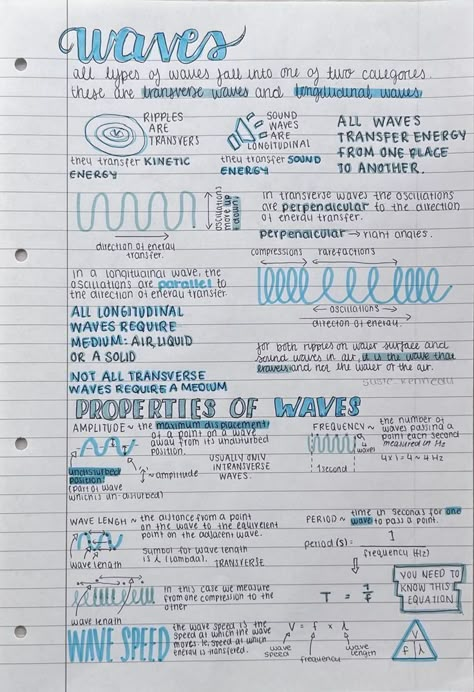 waves
all types of waves fall into one of two categories.
these are transverse waves and longitudinal waves
RIPPLES
ARE
TRANSVERS
they transfer KINETIC
ENERGY
SOUND
WAVES
ARE
LONGITUDINAL
they transfer SOUND
ENERGY
ALL WAVES
TRANSFER ENERGY
FROM ONE PLACE
TO ANOTHER.
oscillations
move up
+ down.
direction of energy
transfer.
in transverse waves the oscillations
are perpendicular to the direction
of energy transfer.
perpendicular → right angles.
in a longitudinal wave, the
oscillations are parallel to
the direction of energy transfer.
compressions rarefactions
oscillations
direction of energy.
ALL LONGITUDINAL
WAVES REQUIRE
MEDIUM: AIR, LIQUID
OR A SOLID
NOT ALL TRANSVERSE
WAVES REQUIRE A MEDIUM
for both ripples on water surface and
sound waves in air, it is the wave that
travels and not the water or the air.
PROPERTIES OF WAVES
AMPLITUDE ~ the maximum displacement
of a point on a wave
away from its undisturbed
position.
undisturbed
position
(part of wave
which is un-disturbed)
~ amplitude
USUALLY ONLY
IN TRANSVERSE
WAVES.
FREQUENCY ~ the number of
waves passing a
point each second
measured in Hz
1 second
4 x 1 = 4 ~ 4 Hz
WAVE LENGH ~ the distance from a point
on the wave to the equivilent
point on the adjacent wave.
wave length
symbol for wave length
is λ (lambda).
TRANSVERSE
in this case we measure
from one compression to the
other
wave length
PERIOD ~ time in seconds for one
wave to pass a point.
period (s) = 1
frequency (Hz)
T = 1
f
YOU NEED TO
KNOW THIS
EQUATION
WAVE SPEED
the wave speed is the
speed at which the wave
moves. ie, speed at which
energy is transfered.
V = f x λ
wave
speed
frequency
wave
length
V
f λ